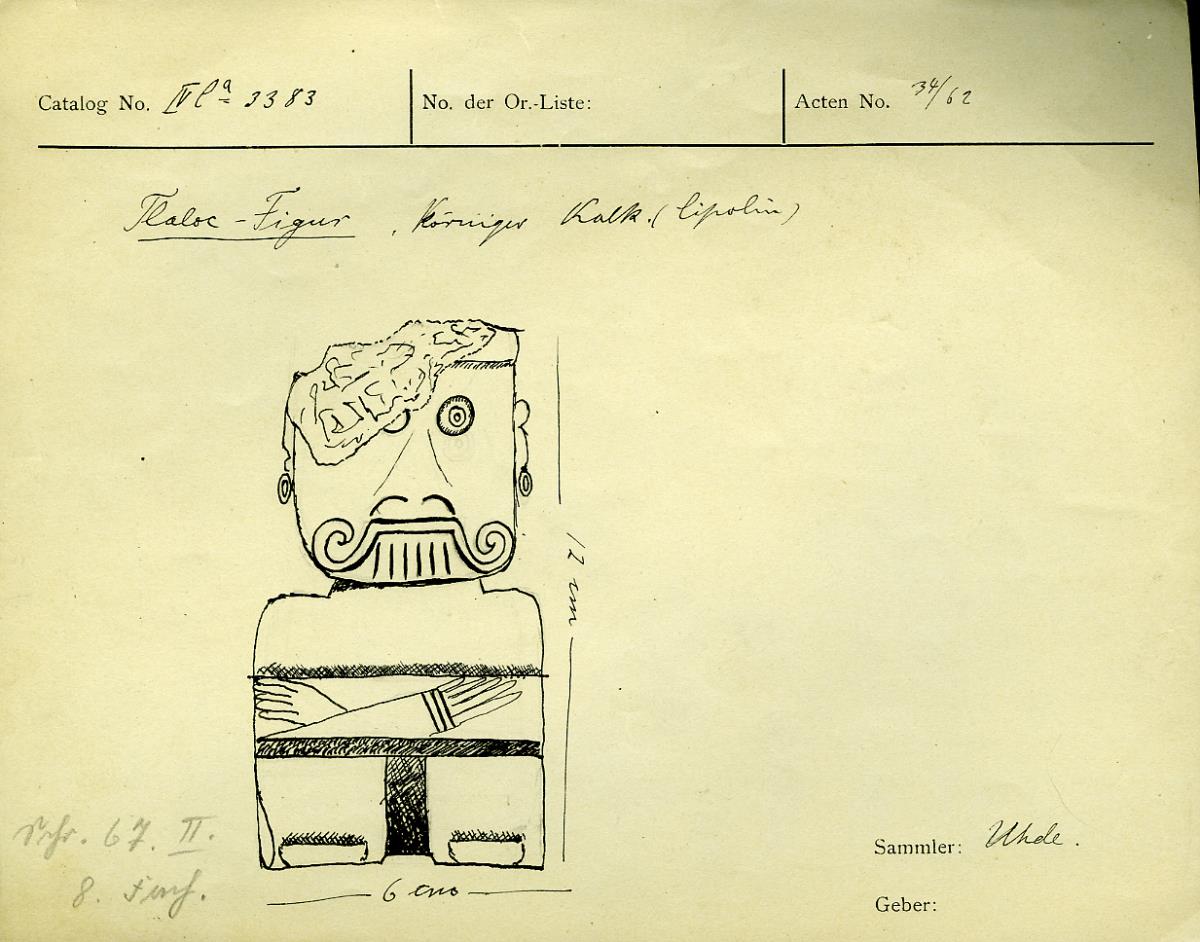 Catalog No. IV Ca 3383
No. der Or.-Liste:
Acten No. 34/62
Tlaloc-Figur, Körniger Kalk. (Cipolin)
12 cm
6 cm
Schr. 67. II.
8. Fach.
Sammler: Uhde.
Geber: